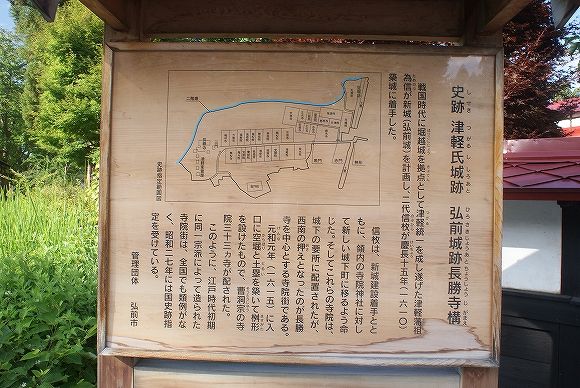 史跡 津軽氏城跡 弘前城跡長勝寺構
しせき つがるししろあと ひろさきじょうあとちょうしょうじがまえ
戦国時代に堀越城を拠点として津軽統一を成し遂げた津軽藩祖
為信が新城(弘前城)を計画し、二代信枚が慶長十五年(一六一〇)
築城に着手した。
信枚は、新城建設着手とと
もに、領内の寺院神社に対し
て新しい城下町に移るよう命
じた。そしてこれらの寺院は、
城下の要所に配置されたが、
西南の押えとなったのが長勝
寺を中心とする寺院街である。
元和元年(一六一五)に入
口に空堀と土塁を築いて桝形
を設けたもので、曹洞宗の寺
院三十三ヵ寺が配された。
このように、江戸時代初期
に同一宗派によって造られた
寺院街は、全国でも類例がな
く、昭和二七年には国史跡指
定を受けている。
管理団体 弘前市
二階堰
史跡指定範囲図
黒門
赤門